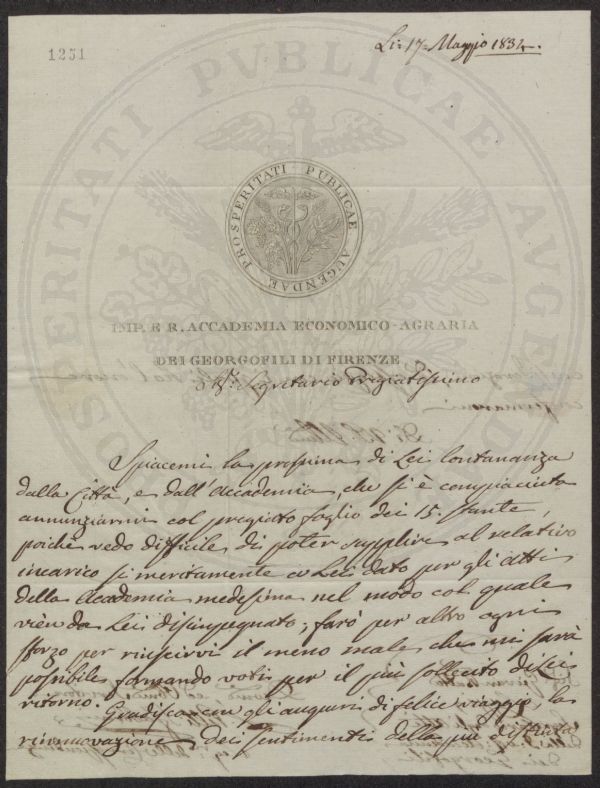 1251
Li: 17. Maggio 1834.
PROSPERITATI PUBLICAE AUGENDAE
IMP. E R. ACCADEMIA ECONOMICO-AGRARIA
DEI GEORGOFILI DI FIRENZE
Segretario Pregiatissimo
Spiacemi la prossima di Lei lontananza
dalla Città, e dall'Accademia, che si è compiaciuta
annunziarmi col pregiato foglio dei 15. stante,
poichè vedo difficile di poter supplire al relativo
incarico si meritamente a Lei dato per gli Atti
della Accademia medesima nel modo col quale
vien da Lei disimpegnato; farò per altro ogni
sforzo per riuscirvi il meno male che mi sarà
possibile formando voti per il più sollecito di Lei
ritorno.
Gradisca con gli auguri di felice viaggio, la
rinnovazione dei sentimenti della più distinta